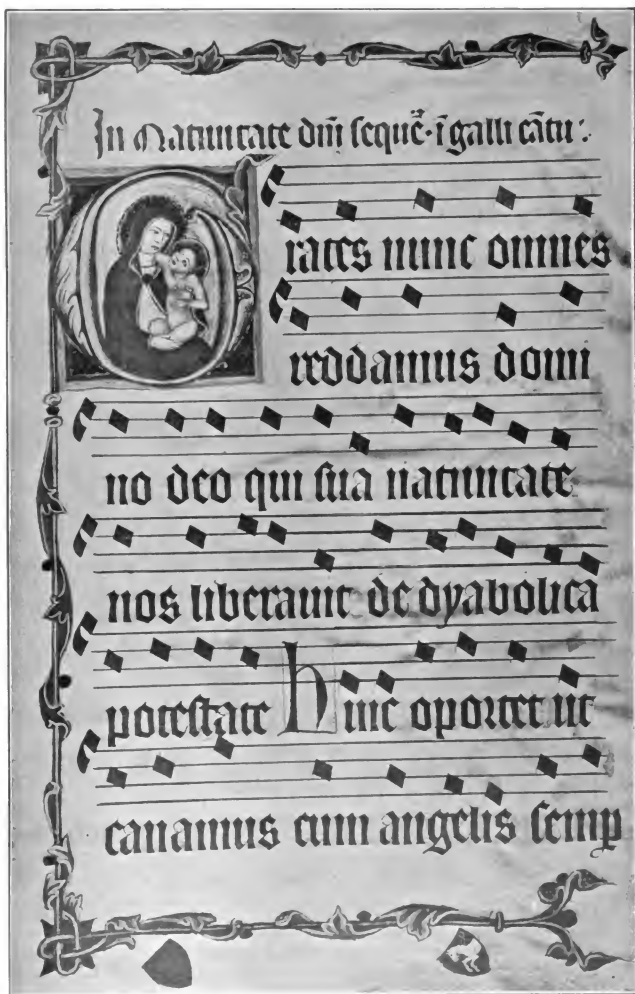 In Natiuitate dn̄i seque̅. ī galli cātu:
Grates nunc omnes
reddamus domi
no deo qui sua natiuitate
nos liberauit de dyabolica
potestate huic oportet ut
canamus cum angelis semꝑ